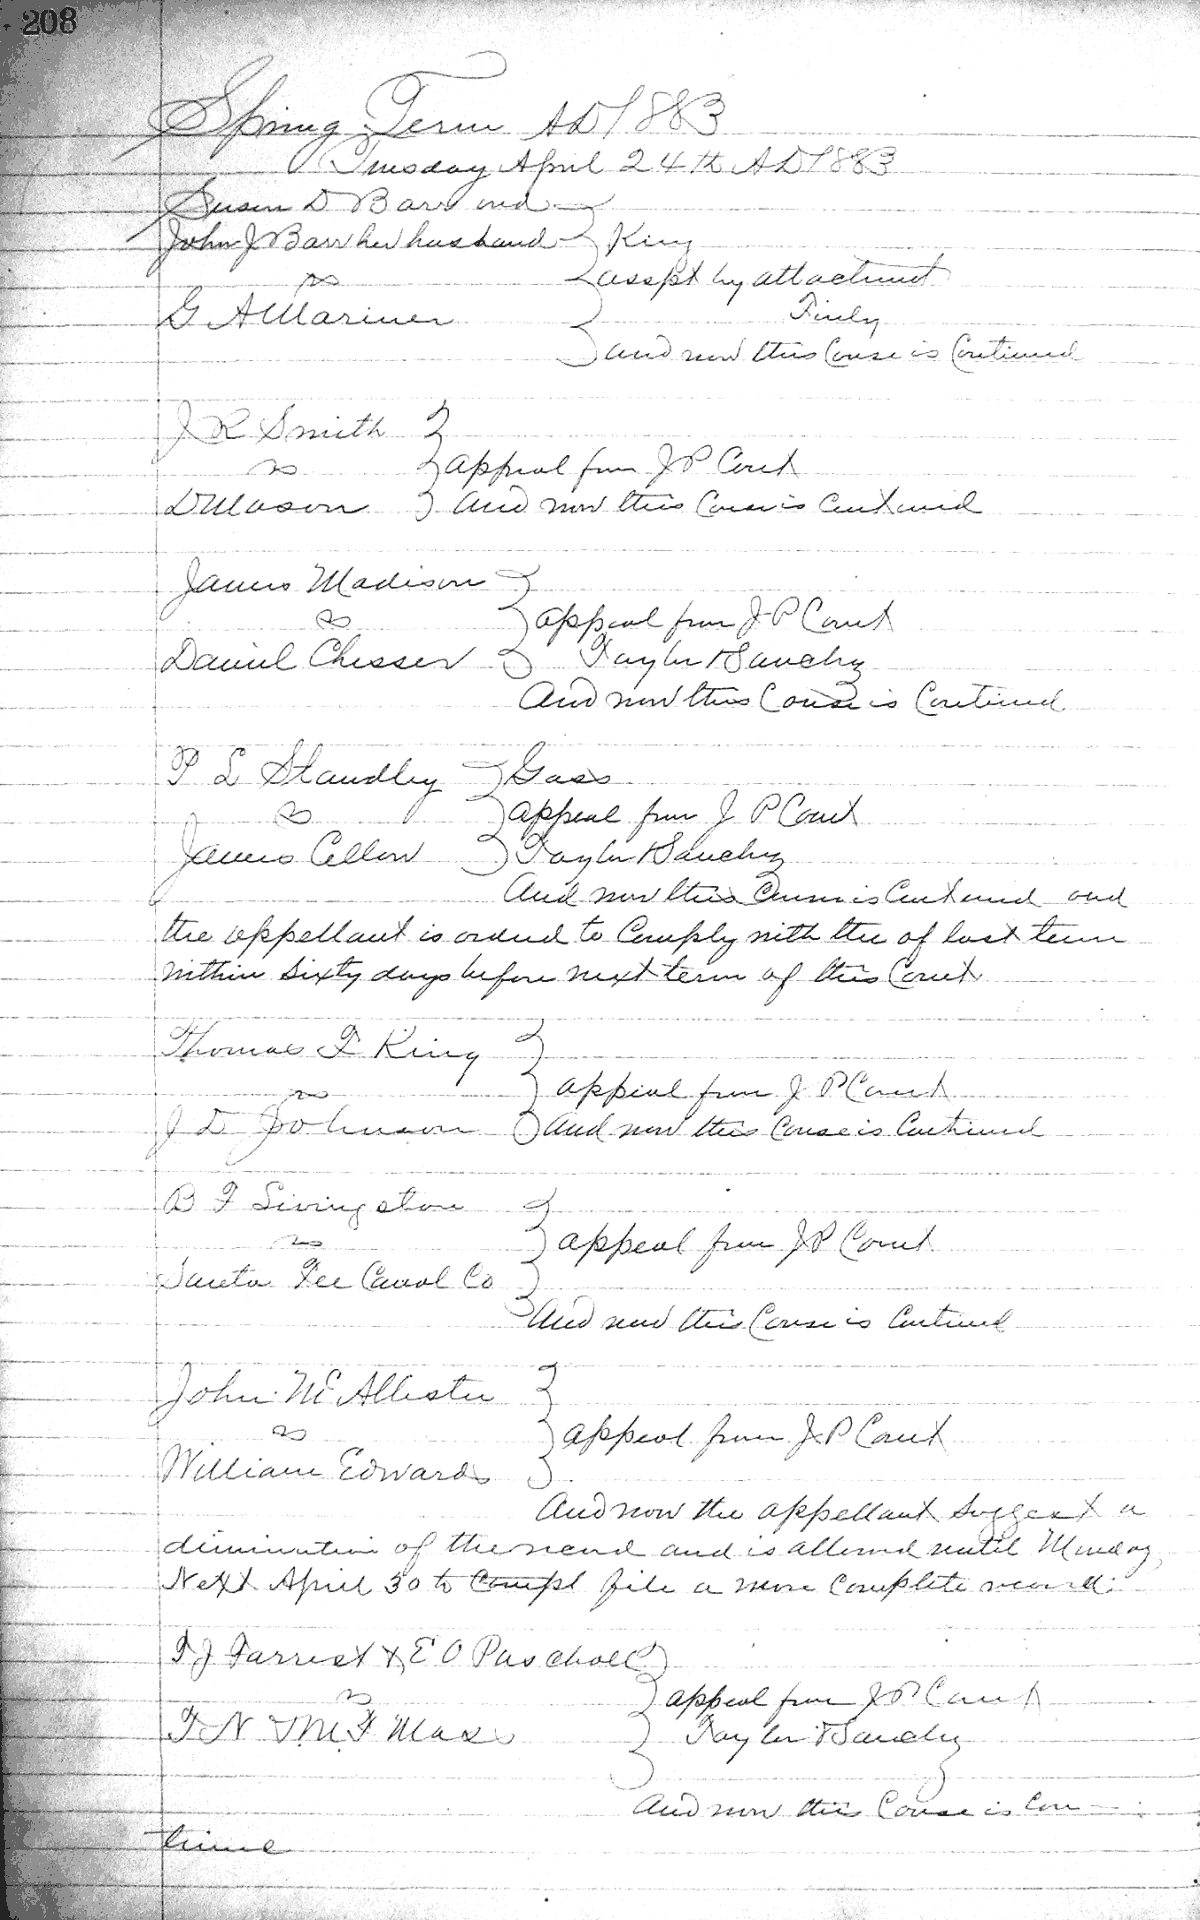 208
Spring Term AD 1883
Tuesday April 24th AD 1883
Susan D Barr and
John J Barr her husband } King
vs } asspt by attachment
G A Mariner } Finly
and now this Couse is Continued
J R Smith }
vs } appeal from J P Court
D Mason } and now this Couse is Continued
James Madison }
vs } appeal from J P Court
Daniel Chesser } Taylor & Sanchz
And now this Couse is Continued
P L Standley } Gass
vs } appeal from J P Court
James Cellon } Taylor & Sanchz
And now this Couse is Continued and
the appellant is ordred to Comply with the of last term
within Sixty days before next term of this Court
Thomas F King }
vs } appeal from J P Court
J D Johnson } and now this Couse is Continued
B F Livingston }
vs } appeal from J P Court
Santa Fee Canal Co }
And now this Couse is Continued
John McAllister }
vs } appeal from J P Court
William Edwards }
And now the appellant Suggest a
diminution of the record and is allowed until Monday
Next April 30 to Compl file a more Complete record
T J Farrest & E O Paschall }
vs } appeal from J P Court
T N & M F Mas } Taylor & Sanchz
And now this Couse is Con
tinue